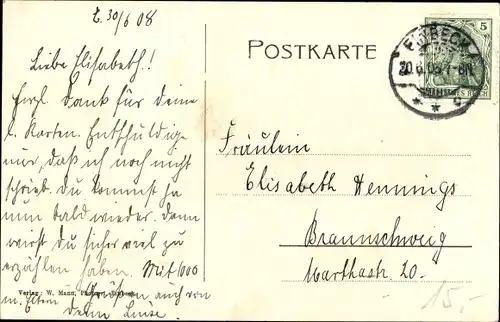 E. 30/6 08
Liebe Elisabeth!
Herzl. Dank für deine
l. Karten. Entschuldige
nur, daß ich noch nicht
schrieb. Du kommst ja
nun bald wieder. Dann
wirst Du sicher viel zu
erzählen haben. Mit 1000
Grüßen auch von
m. Eltern
Deine Luise.
Verlag: W. Mann,
POSTKARTE
EINBECK
5
Fräulein
Elisabeth Hennings
Braunschweig
Marthastr. 20.
15,-